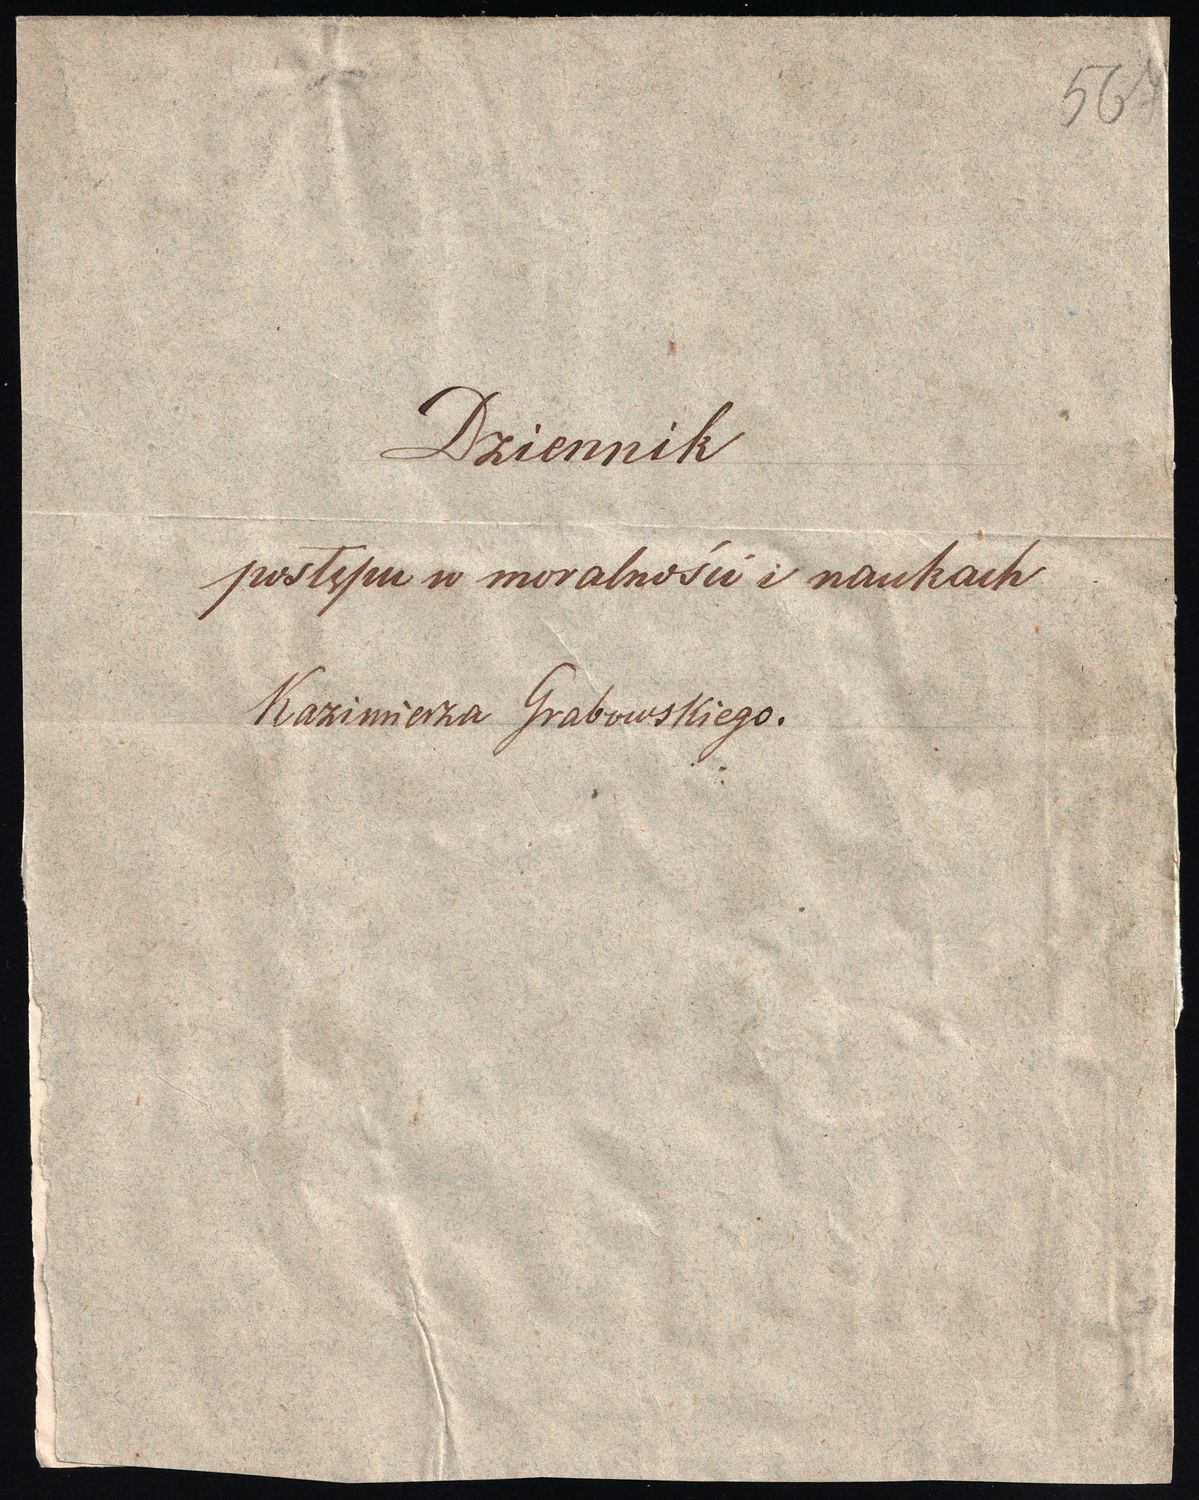 56
Dziennik
postępu w moralności i naukach
Kazimierza Grabowskiego.